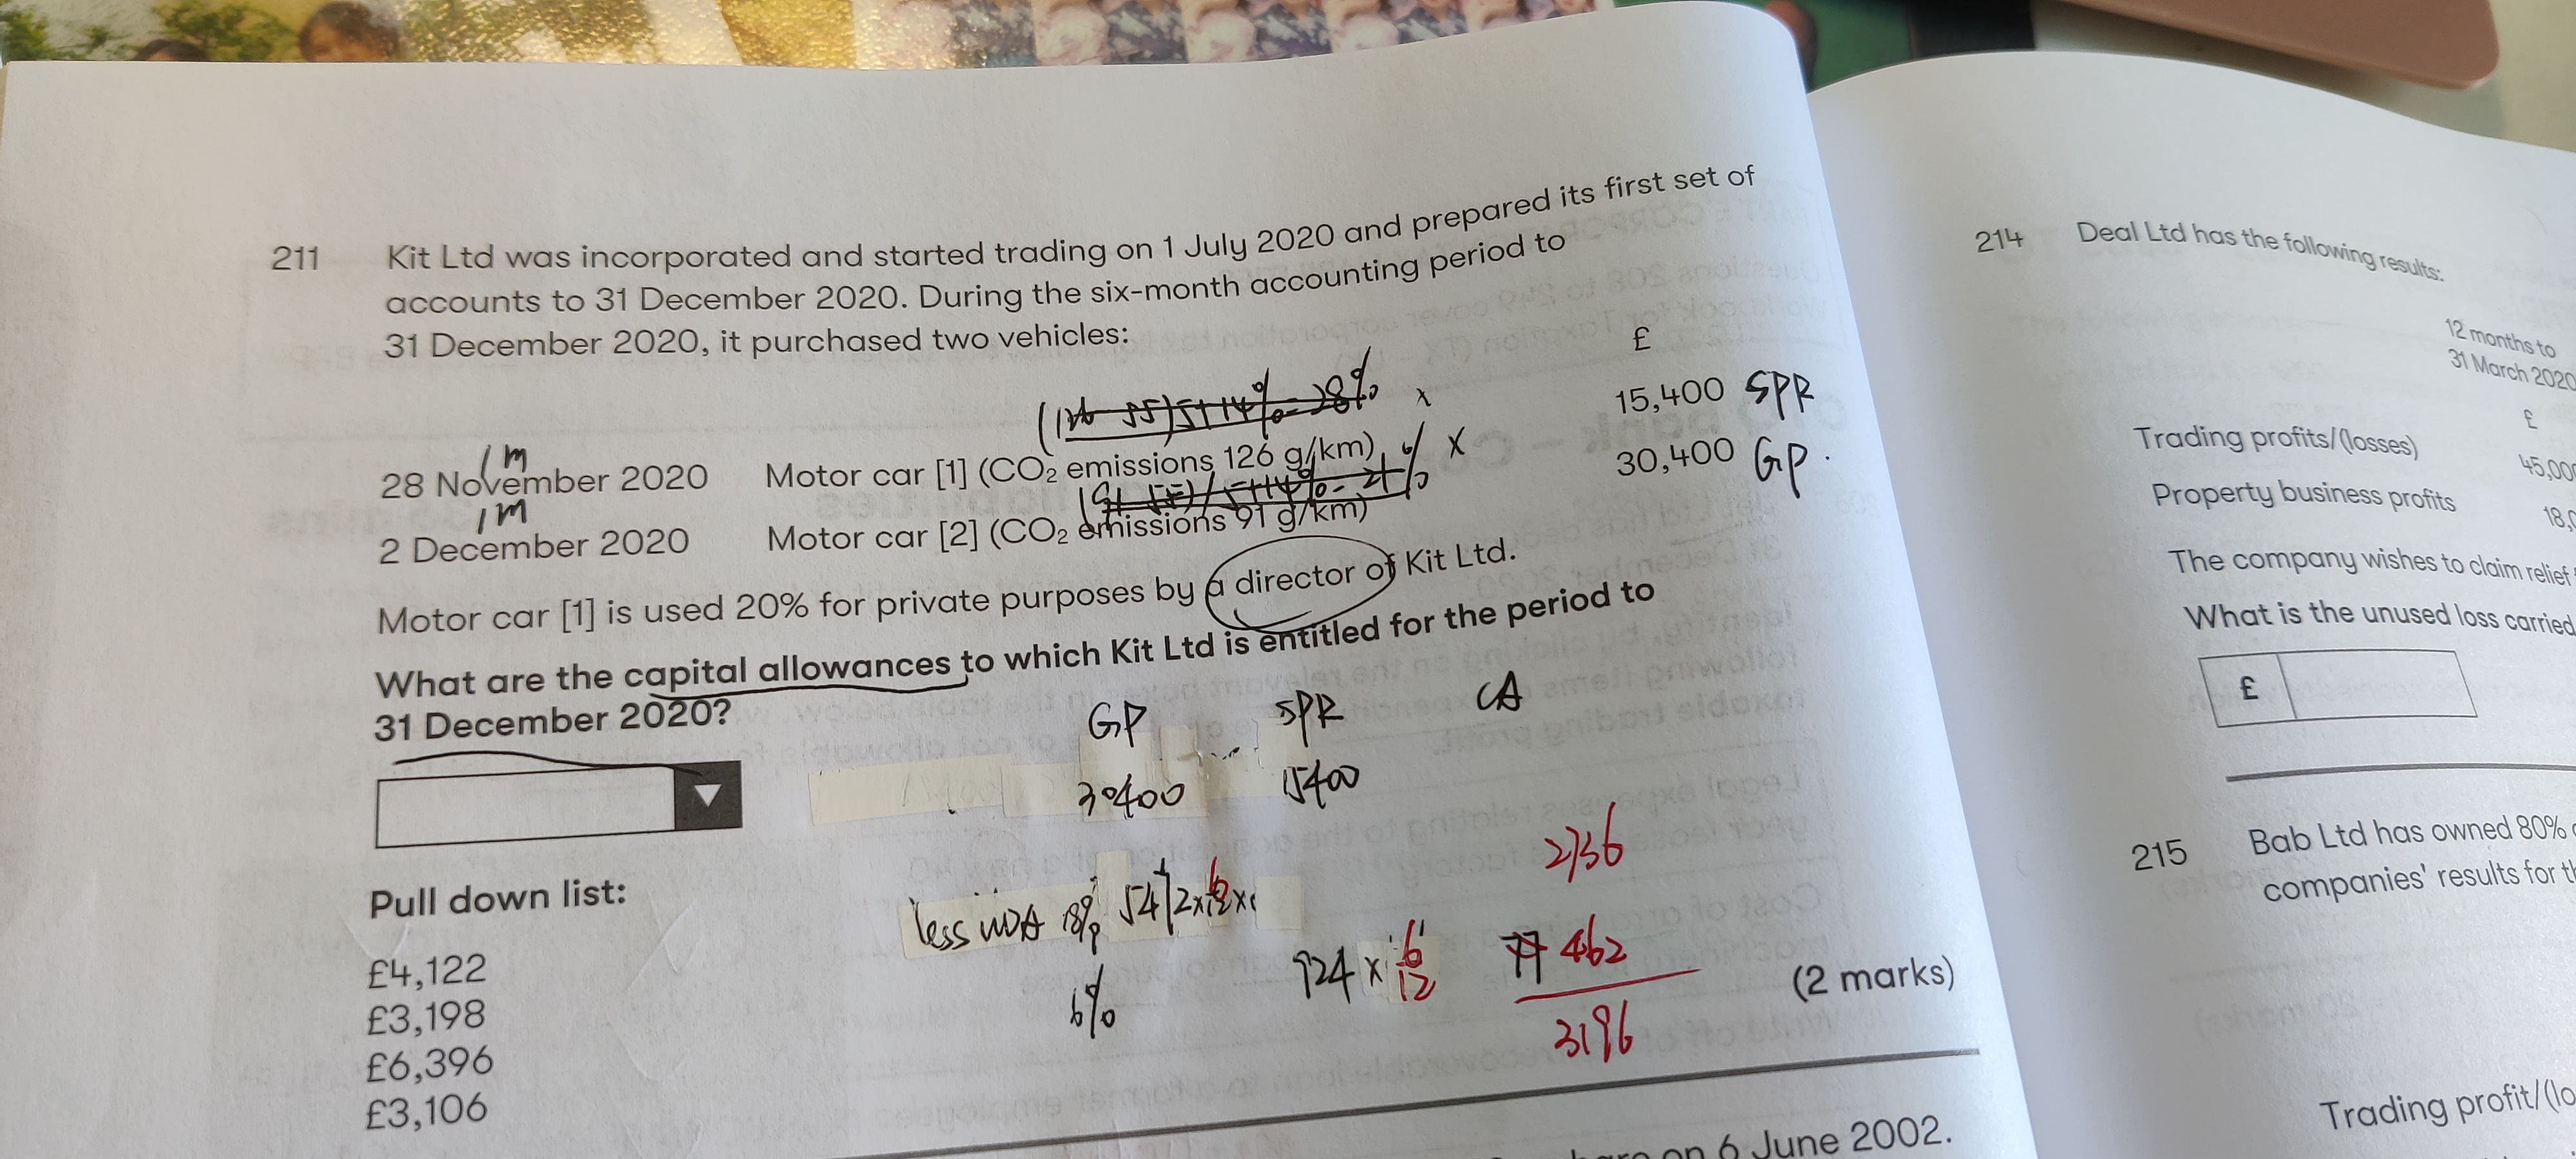 211 Kit Ltd was incorporated and started trading on 1 July 2020 and prepared its first set of
accounts to 31 December 2020. During the six-month accounting period to
31 December 2020, it purchased two vehicles:
£
28 November 2020 Motor car [1] (CO₂ emissions 126 g/km) 15,400 SPR
1m
2 December 2020 Motor car [2] (CO₂ emissions 91 g/km) 30,400 GP.
1m
Motor car [1] is used 20% for private purposes by a director of Kit Ltd.
What are the capital allowances to which Kit Ltd is entitled for the period to
31 December 2020?
GP SPR CA
30400 15400
2736
Pull down list:
less WDA 18% 5472×6/12
£4,122
6% 924 × 6/12 462
£3,198
3196
(2 marks)
£6,396
£3,106
on 6 June 2002.
214 Deal Ltd has the following results:
12 months to
31 March 2020
£
Trading profits/(losses) 45,00
Property business profits 18,
The company wishes to claim relief
What is the unused loss carried
£
215 Bab Ltd has owned 80%
companies' results for
Trading profit/(lo